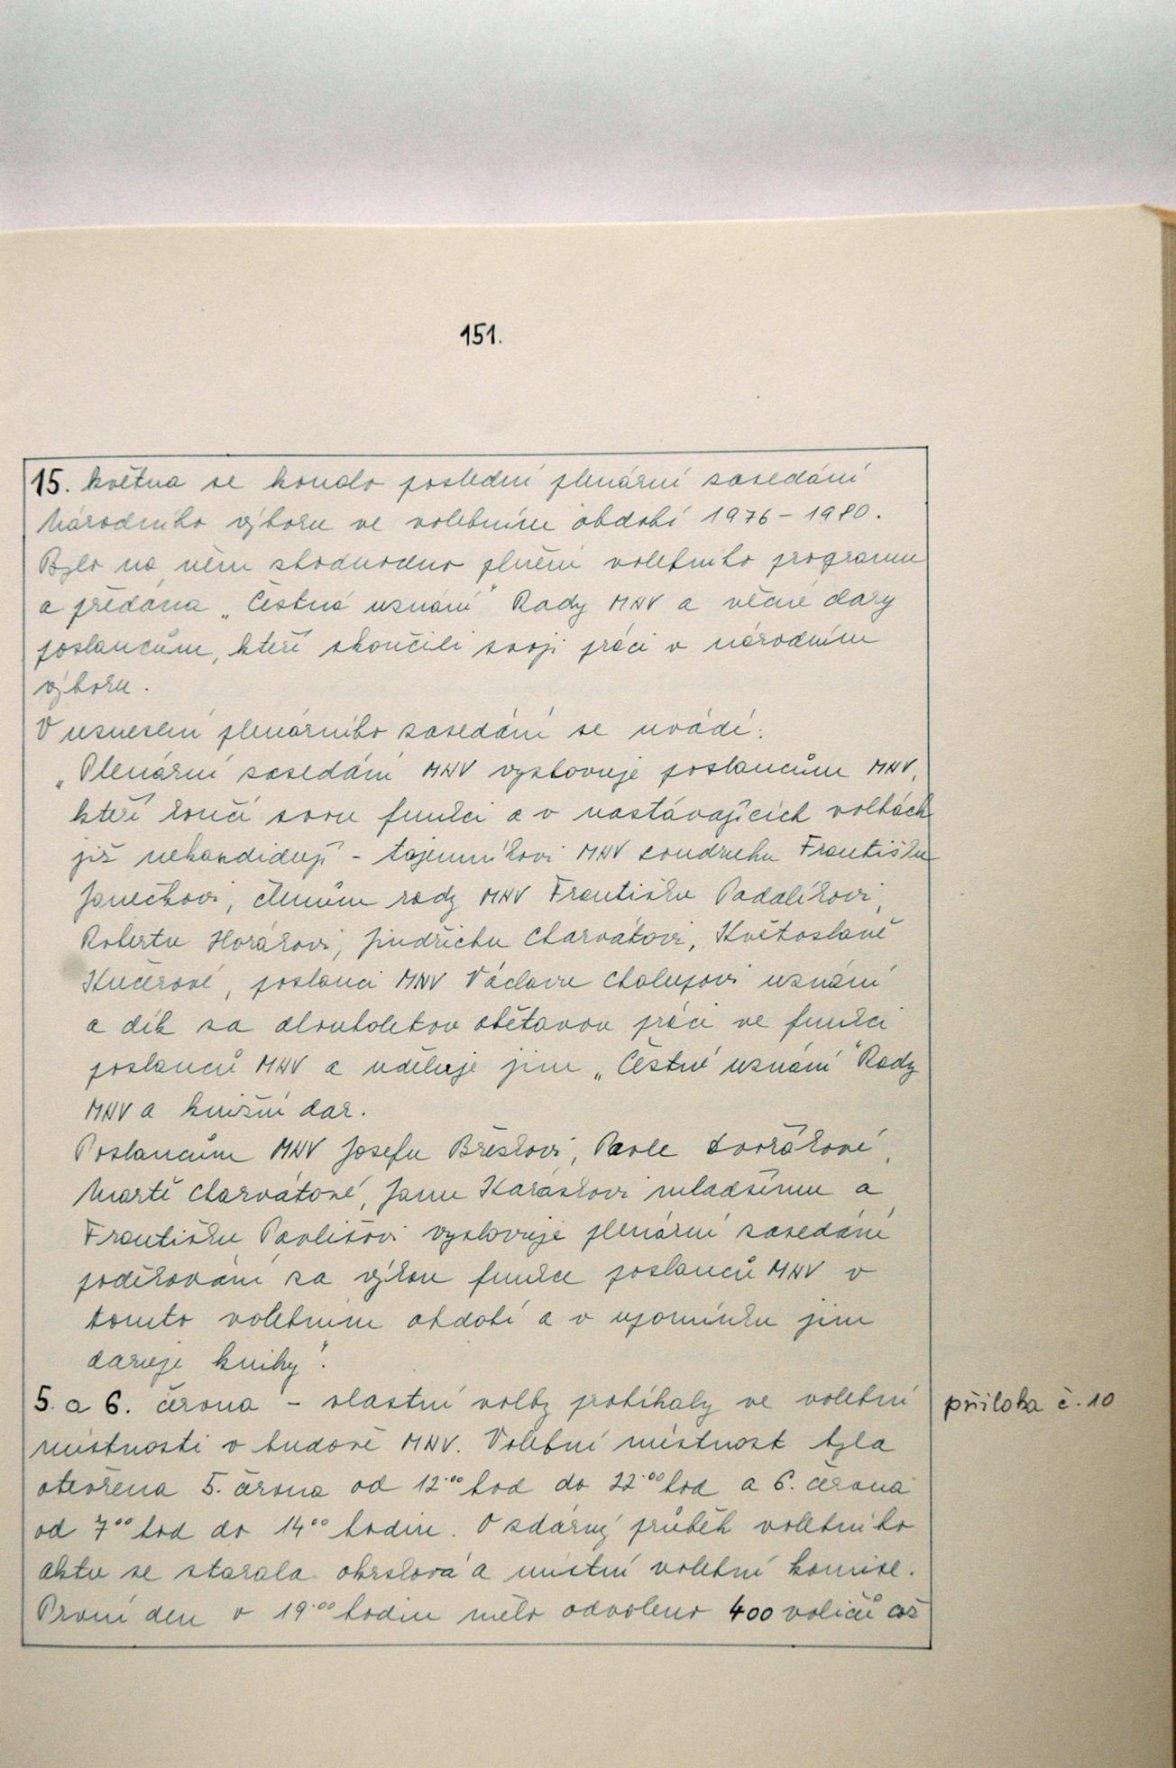 151.
15. května se konalo poslední plenární zasedání
Národního výboru ve volebním období 1976 - 1980.
Bylo na něm zhodnoceno plnění volebního programu
a předána „Čestná uznání" Rady MNV a věcné dary
poslancům, kteří skončili svoji práci v národním
výboru.
V usnesení plenárního zasedání se uvádí:
„Plenární zasedání MNV vyslovuje poslancům MNV,
kteří končí svou funkci a v nastávajících volbách
již nekandidují - tajemníkovi MNV soudruhu Františku
Janečkovi, členům rady MNV Františku Padalíkovi,
Robertu Horákovi, Jindřichu Charvátovi, Květoslavě
Kučerové, poslanci MNV Václavu Chalupovi uznání
a dík za dlouholetou obětavou práci ve funkci
poslanců MNV a uděluje jim „Čestné uznání" Rady
MNV a knižní dar.
Poslancům MNV Josefu Břeskovi, Pavle Dvořákové,
Martě Charvátové, Janu Karáskovi mladšímu a
Františku Pavlišovi vyslovuje plenární zasedání
poděkování za výkon funkce poslanců MNV v
tomto volebním období a v upomínku jim
daruje knihy".
5. a 6. června - vlastní volby probíhaly ve volební
příloha č. 10
místnosti v budově MNV. Volební místnost byla
otevřena 5. června od 12.00 hod do 22.00 hod a 6. června
od 7.00 hod do 14.00 hodin. O zdárný průběh volebního
aktu se starala okrsková a místní volební komise.
První den v 19.00 hodin mělo odvoleno 400 voličů což